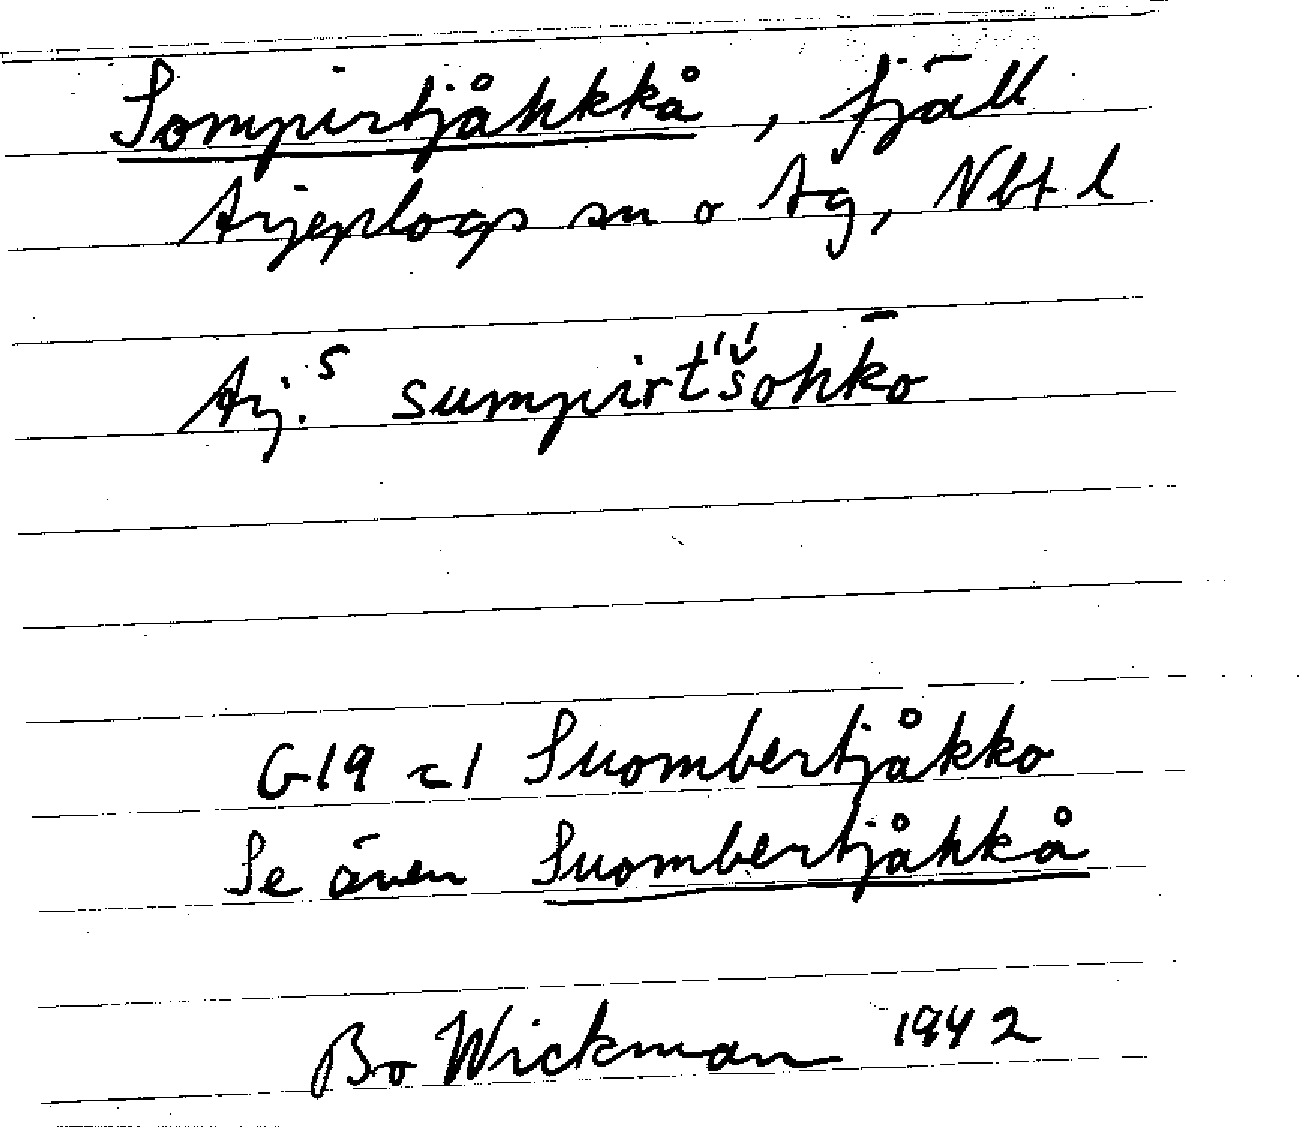 Sompirtjåhkkå, fjäll
Arjeplogs sn o tg, Nbt l
Arj.ˢ sumpirt'š́ohk̄o
G19 c1 Suombertjåkko
Se även Suombertjåhkkå
Bo Wickman 1942